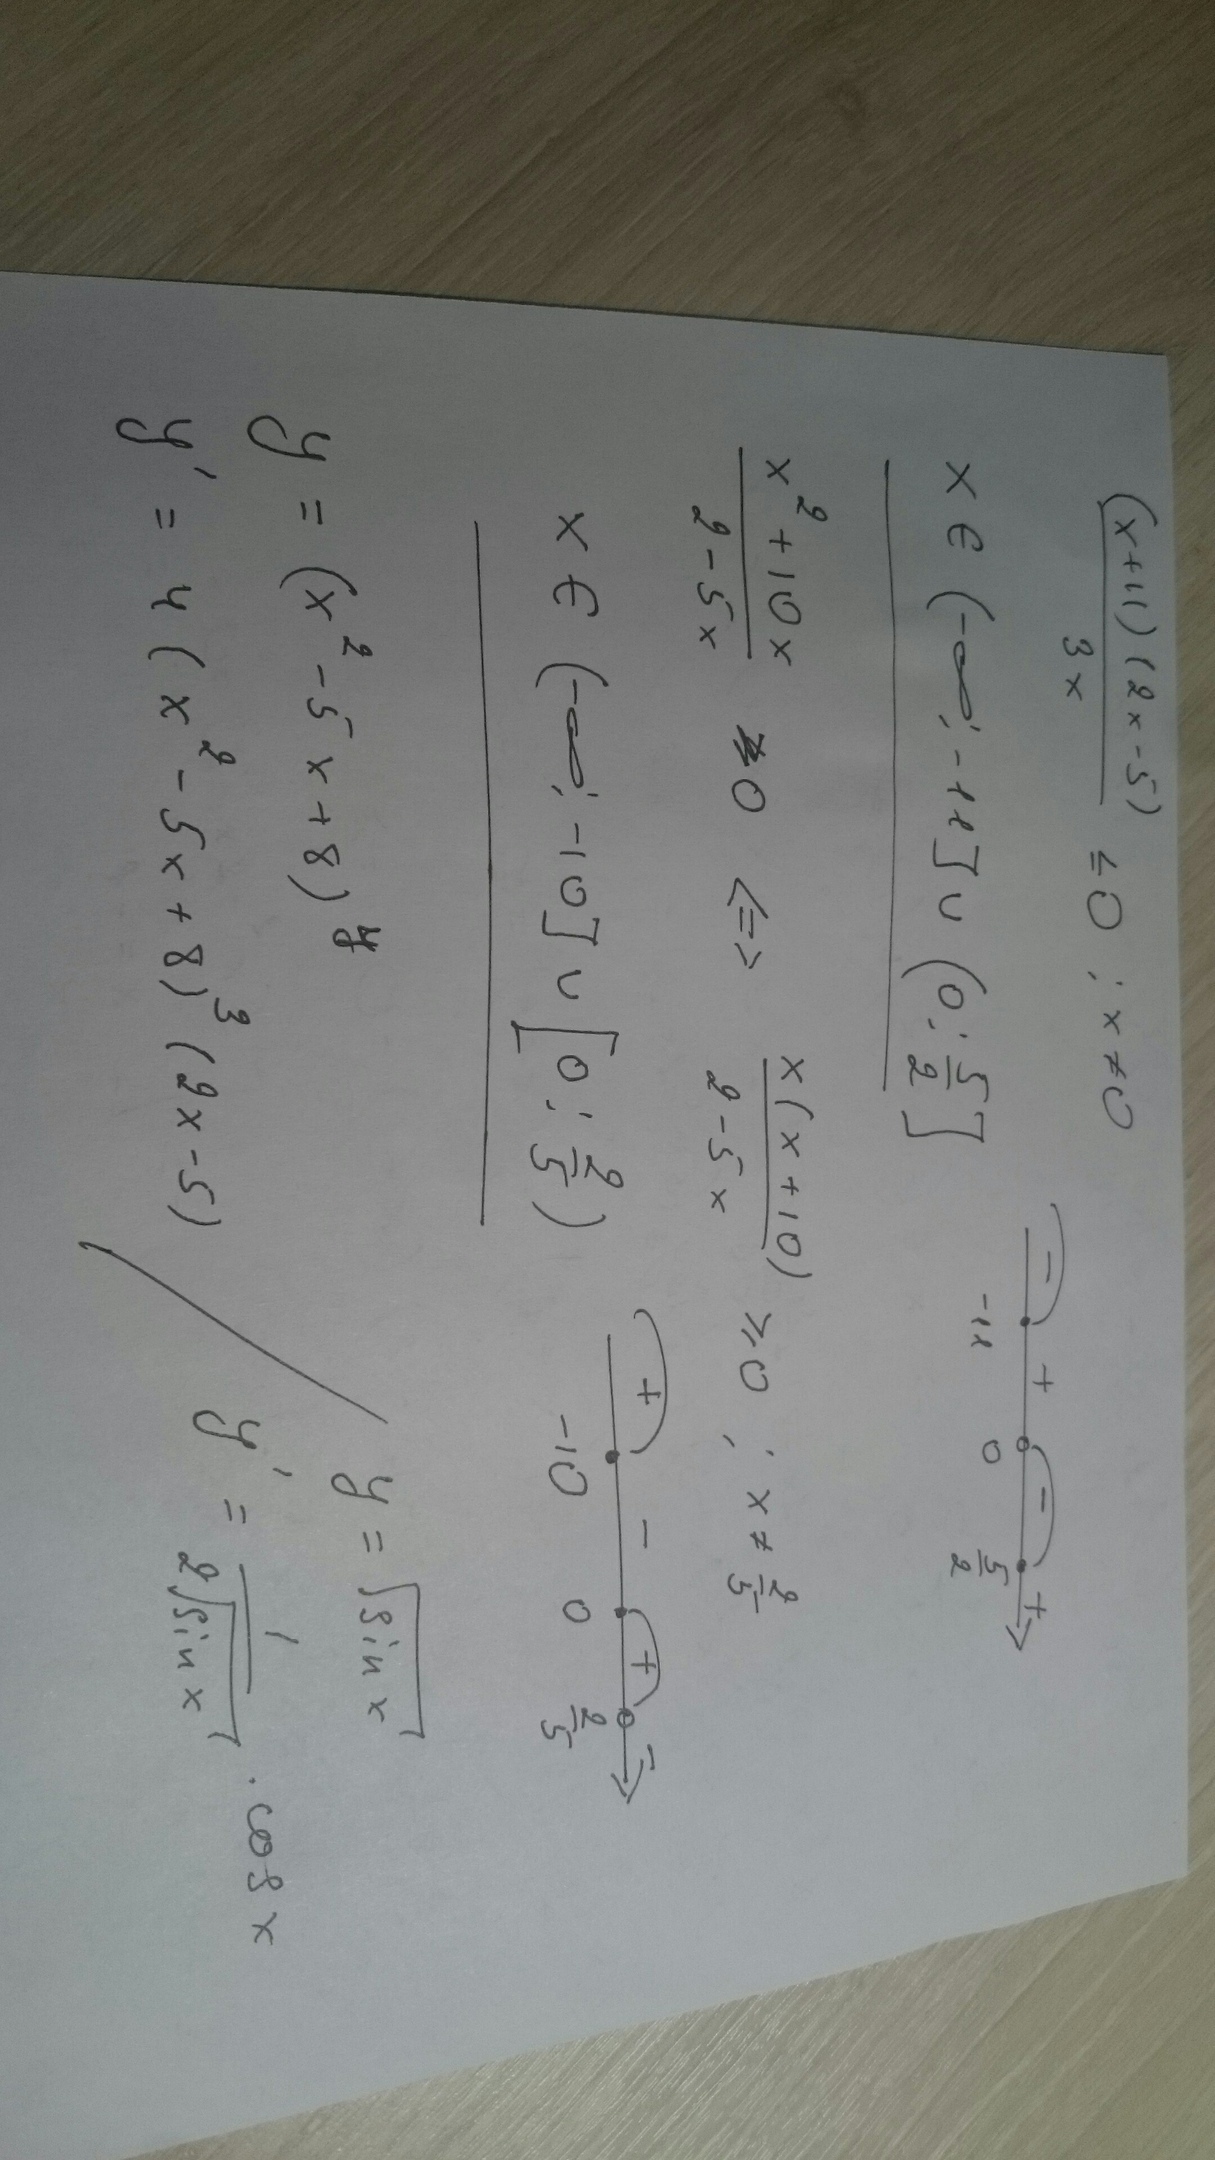 (x+11)(2x-5)/3x ≤0 ; x≠0
- + - +
-11 0 5/2
x ∈ (-∞; -11] ∪ (0; 5/2]
(x²+10x)/(2-5x) ≥0 <=> x(x+10)/(2-5x) ≥0 ; x≠2/5
+ - + -
-10 0 2/5
x ∈ (-∞; -10] ∪ [0; 2/5)
y = (x²-5x+8)⁴
y' = 4(x²-5x+8)³(2x-5)
y = √sin x
y' = 1/(2√sin x) · cos x